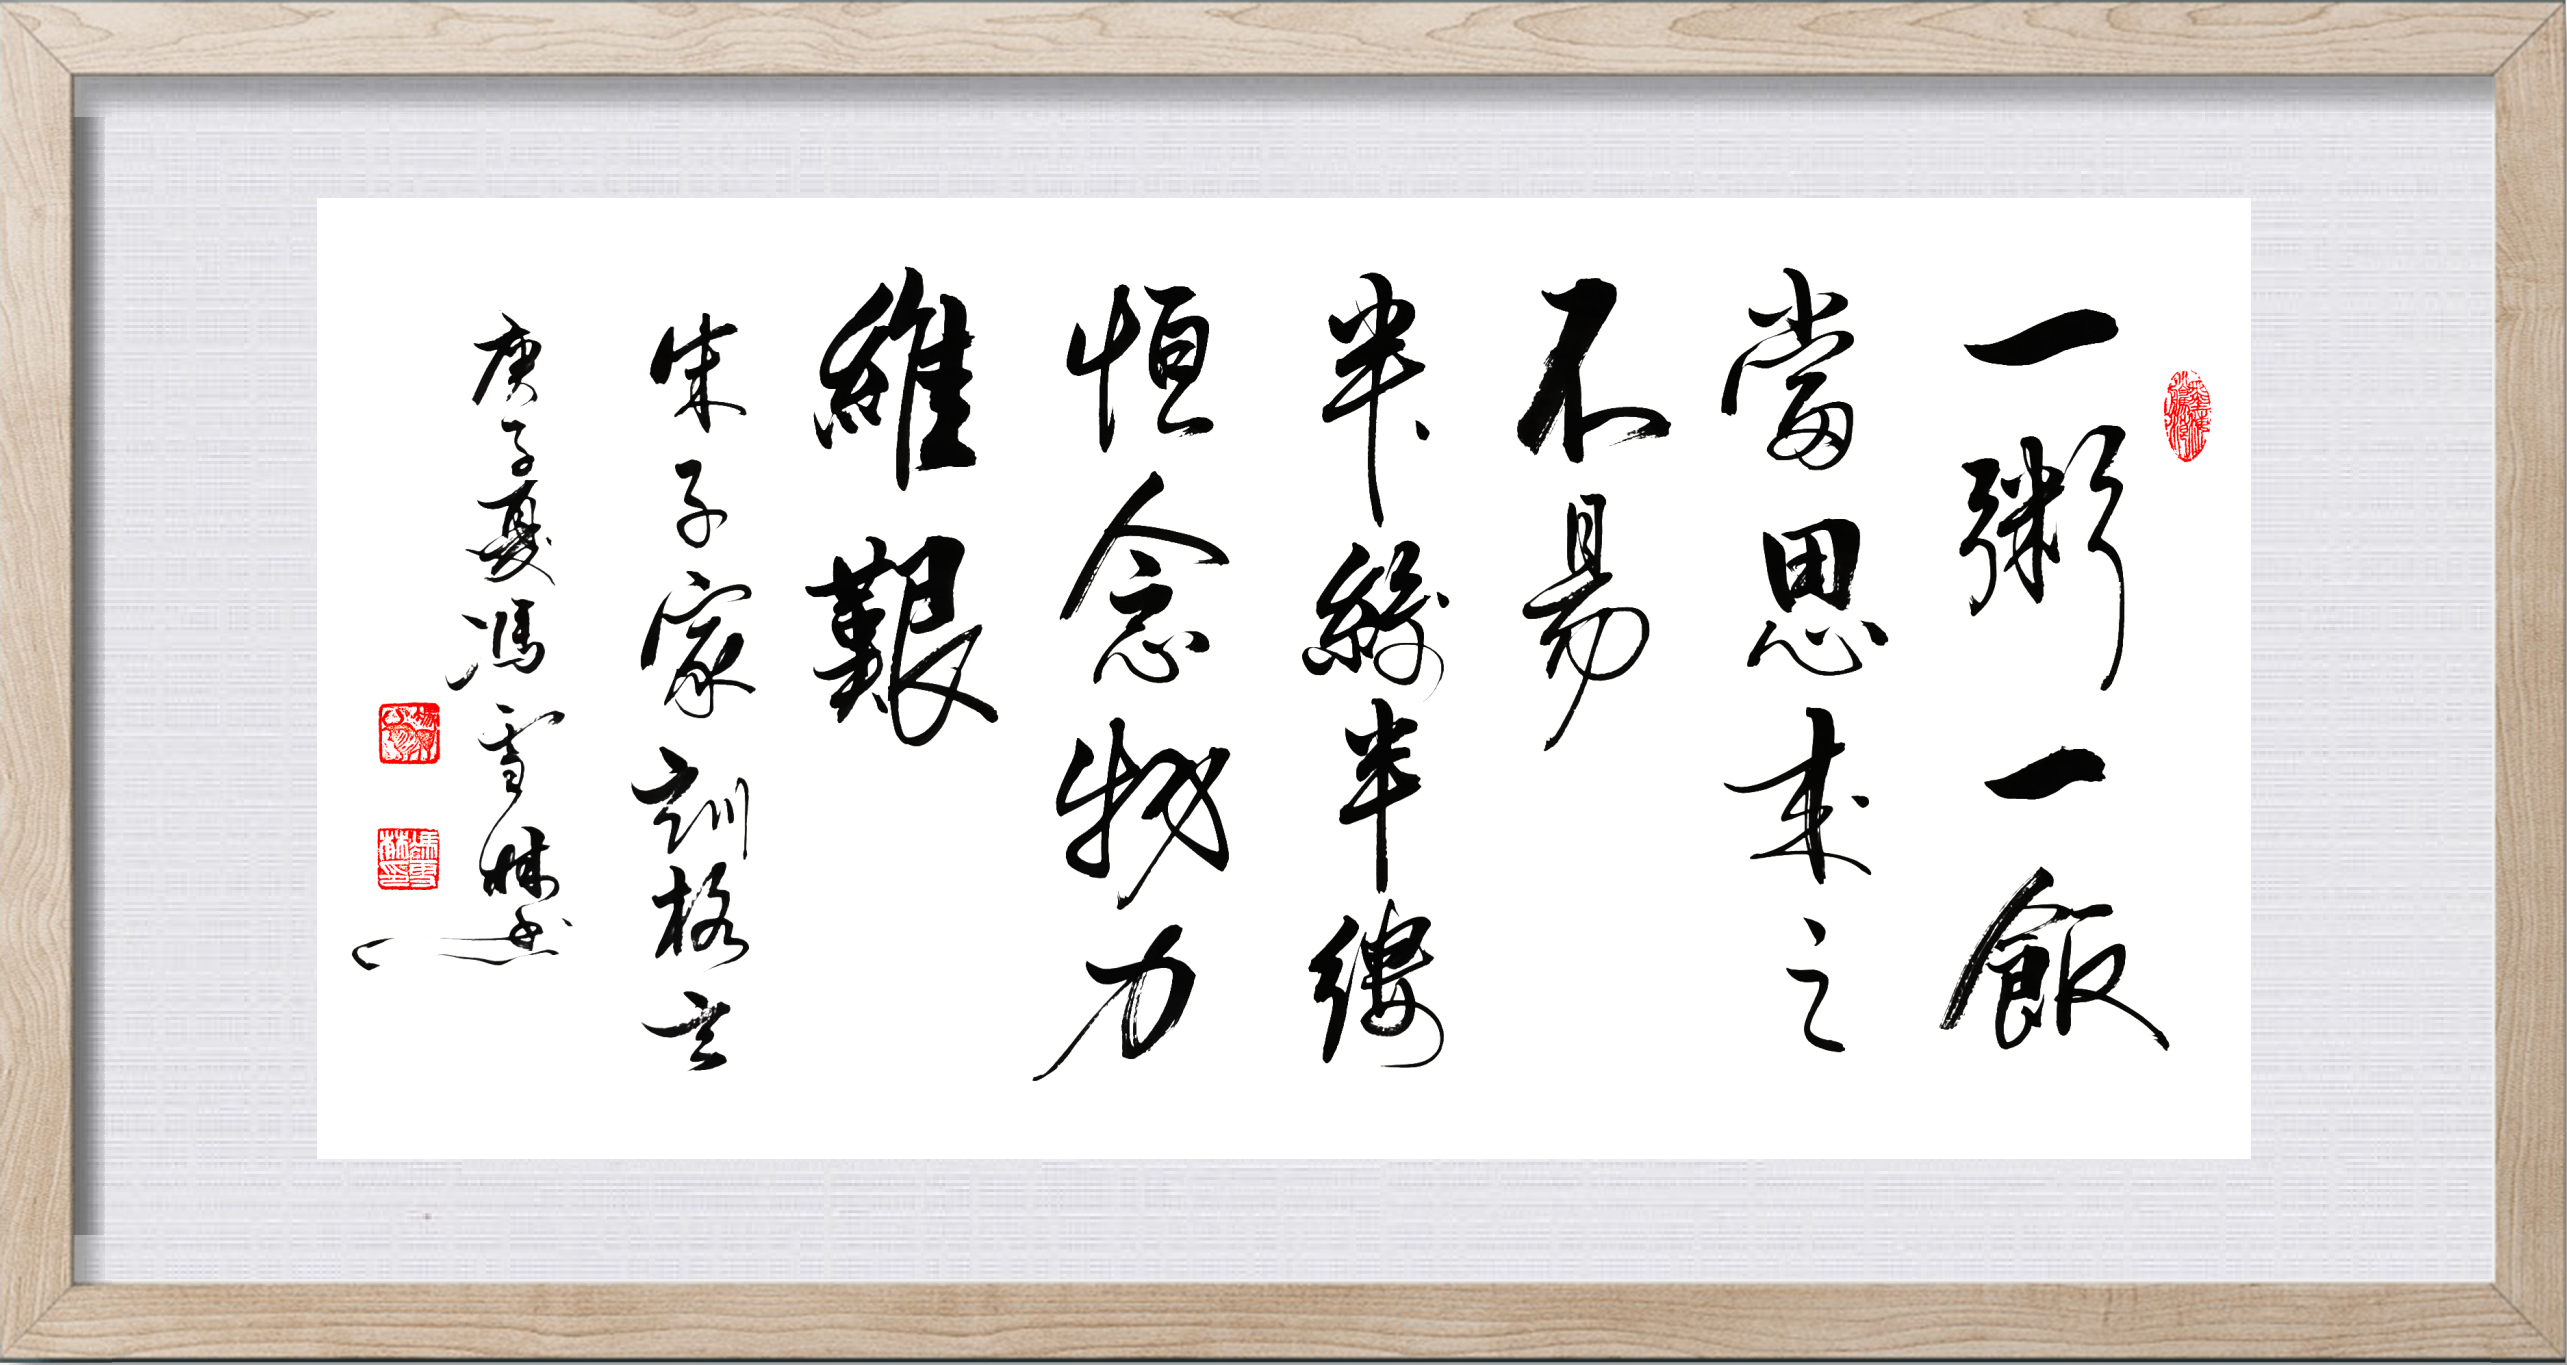 一粥一飯
當思來之
不易
半絲半縷
恒念物力
維艱
朱子家訓格言
庚子夏馮雪林書